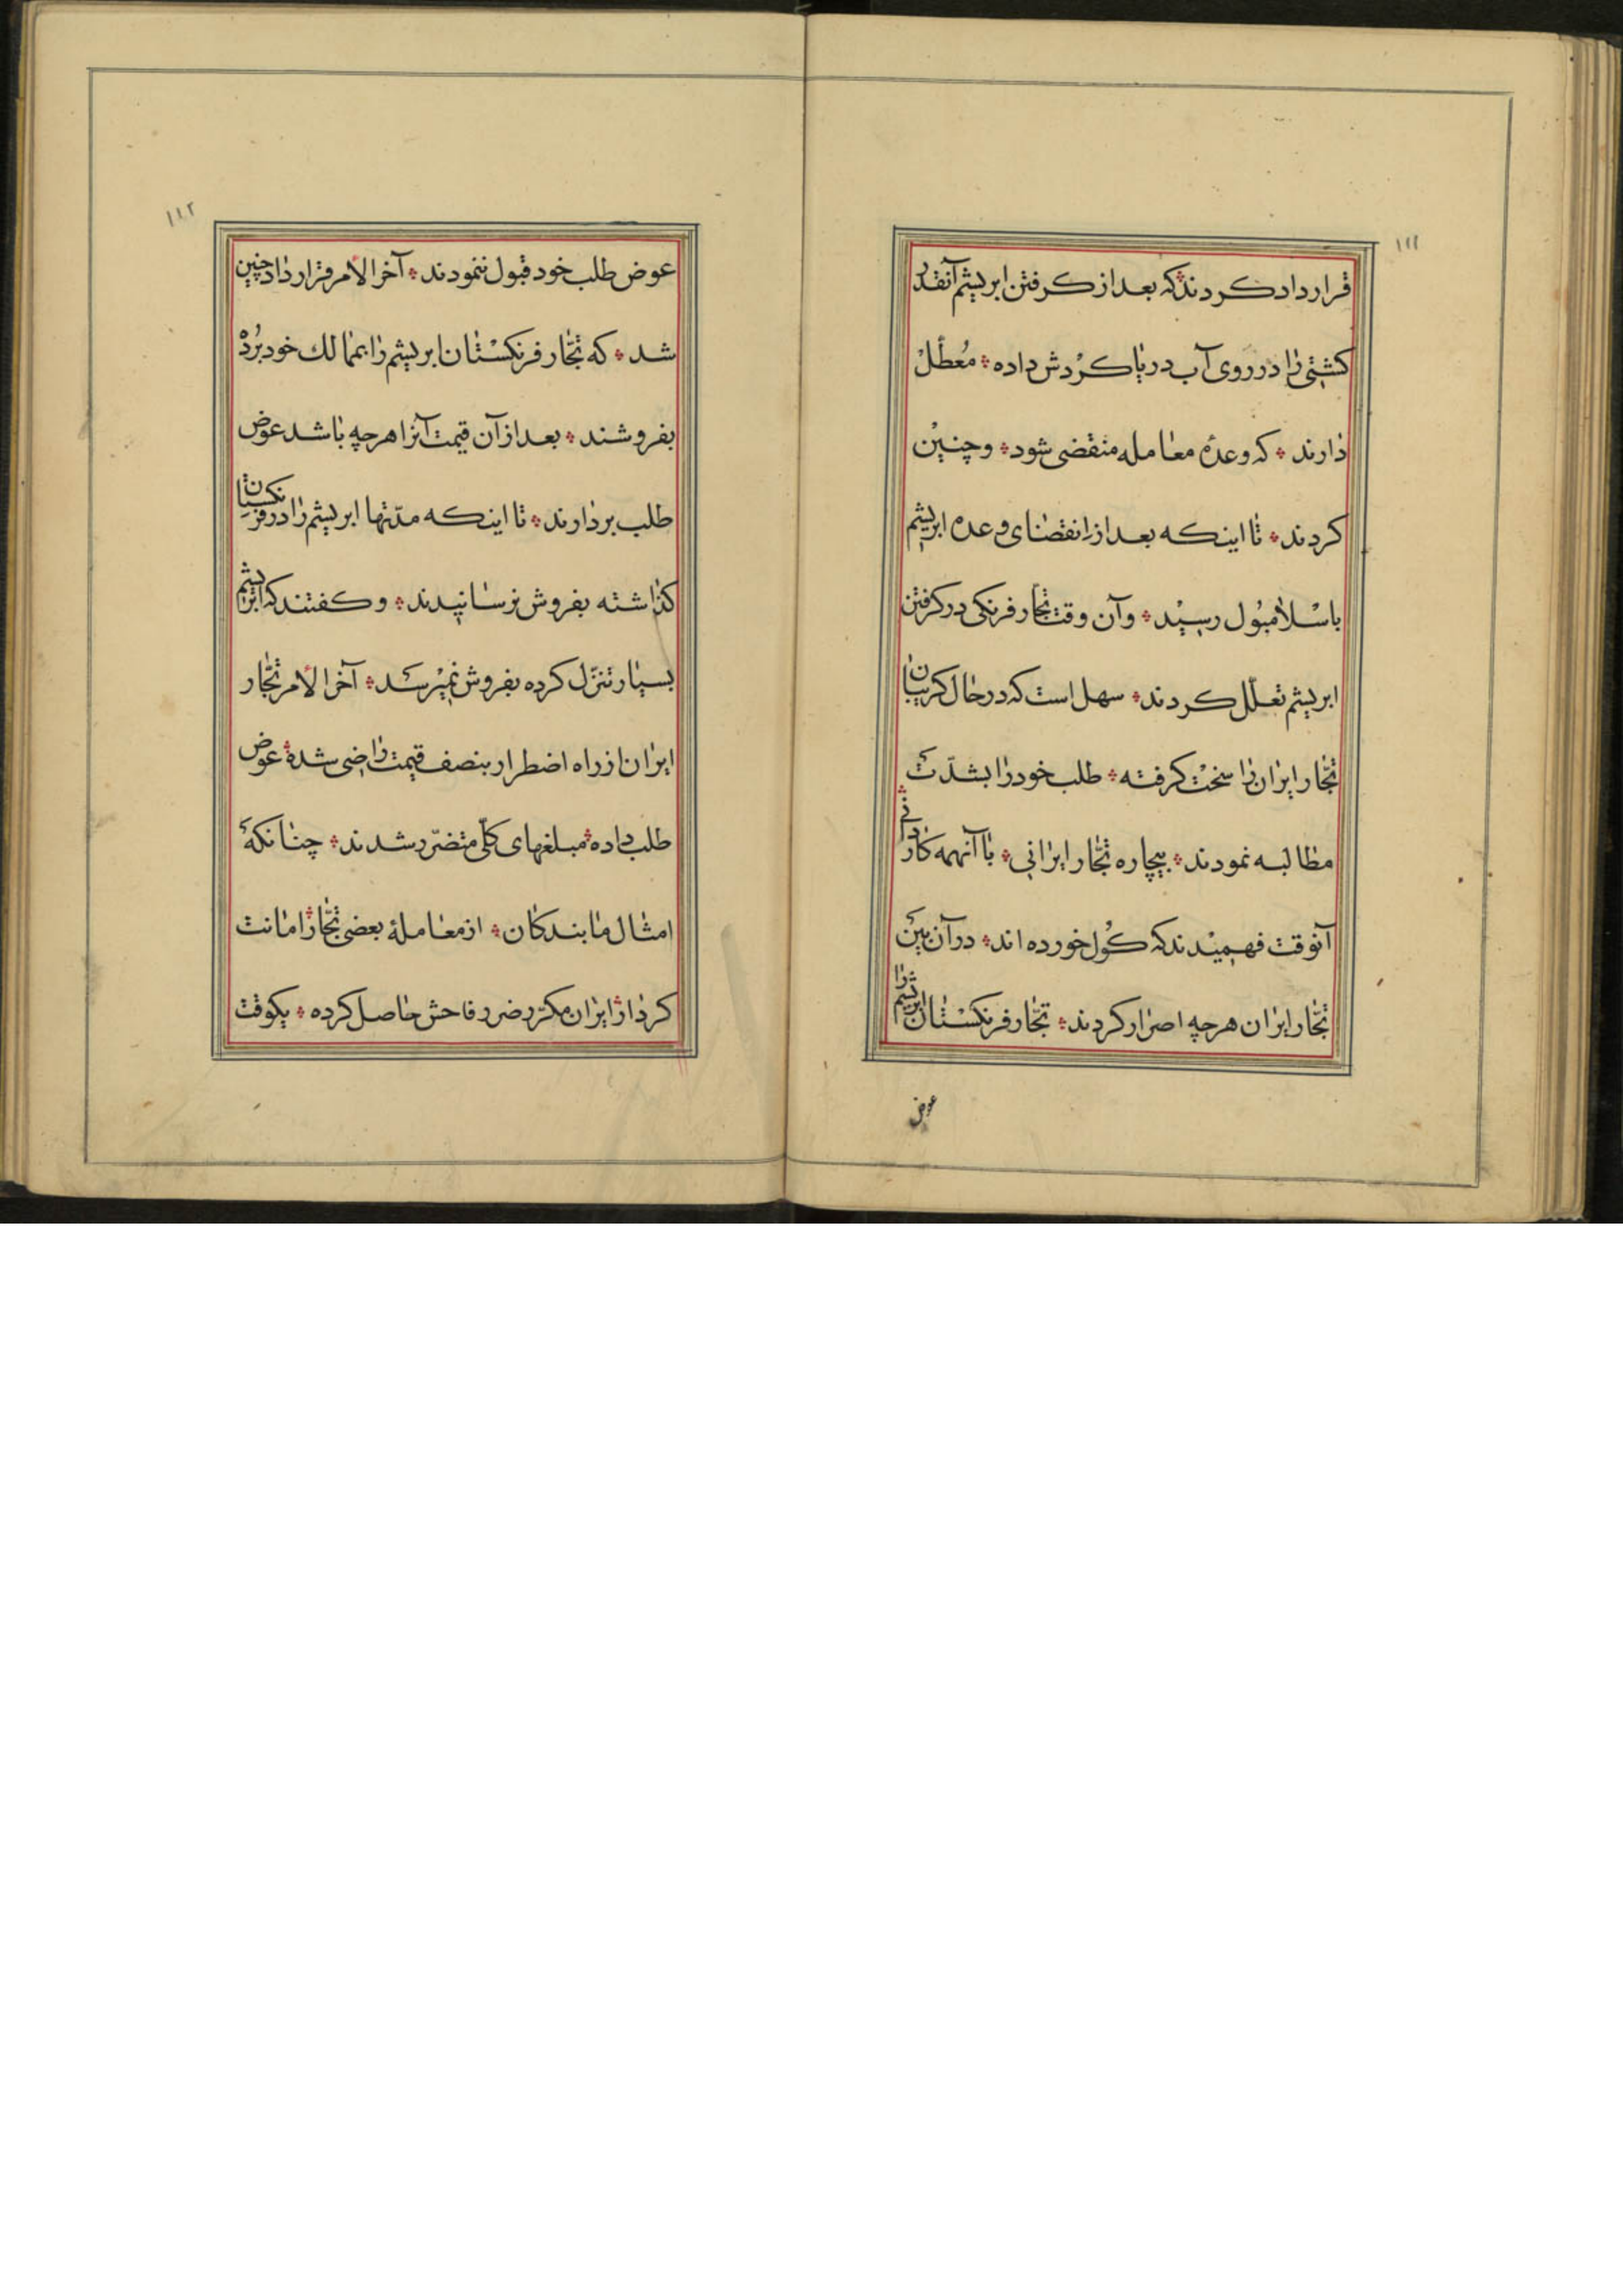 ۱۱۱
قرارداد کردند که بعد از کرفتن ابریشم آنقدر
کشتی را در روی آب دریا کردش داده ؞ مُعطّلْ
دارند ؞ که وعدهٔ معامله منقضی شود ؞ و چنینْ
کردند ؞ تا اینکه بعد از انقضای وعده ابریشم
باسْلامبُول رسیْد ؞ و آن وقت تجّار فرنکی در کرفتن
ابریشم تعلّل کردند ؞ سهل است که در حال کریبان
تجّار ایران را سختْ کرفته ؞ طلب خود را بشدّت
مطالبه نمودند ؞ بیچاره تجّار ایرانی ؞ با آنهمه کاردانی ؞
آنوقت فهمیْدند که کُول خورده اند ؞ در آن بین
تجّار ایران هرچه اصرار کردند ؞ تجّار فرنکسْتان ابریشم را
عوض
۱۱۲
عوض طلب خود قبول ننمودند ؞ آخر الامر قرارداد چنین
شد ؞ که تجّار فرنکسْتان ابریشم را بممالك خود بُردْ
بفروشند ؞ بعد از آن قیمت آنرا هرچه باشد عوض
طلب بردارند ؞ تا اینکه مدّتها ابریشم را در فرنکستان
کذاشته بفروش نرسانیدند ؞ و کفتند که ابریشم
بسیار تنزّل کرده بفروش نمیْرسد ؞ آخر الامر تجّار
ایران از راه اضطرار بنصف قیمت راضی شده ؞ عوض
طلب داده ؞ مبلغهای کلّی متضرّر شدند ؞ چنانکه
امثال ما بندکان ؞ از معاملهٔ بعضی تجّار ؞ امانت
کردار ؞ ایران مکرّر ضرر فاحش حاصل کرده ؞ یکوقت